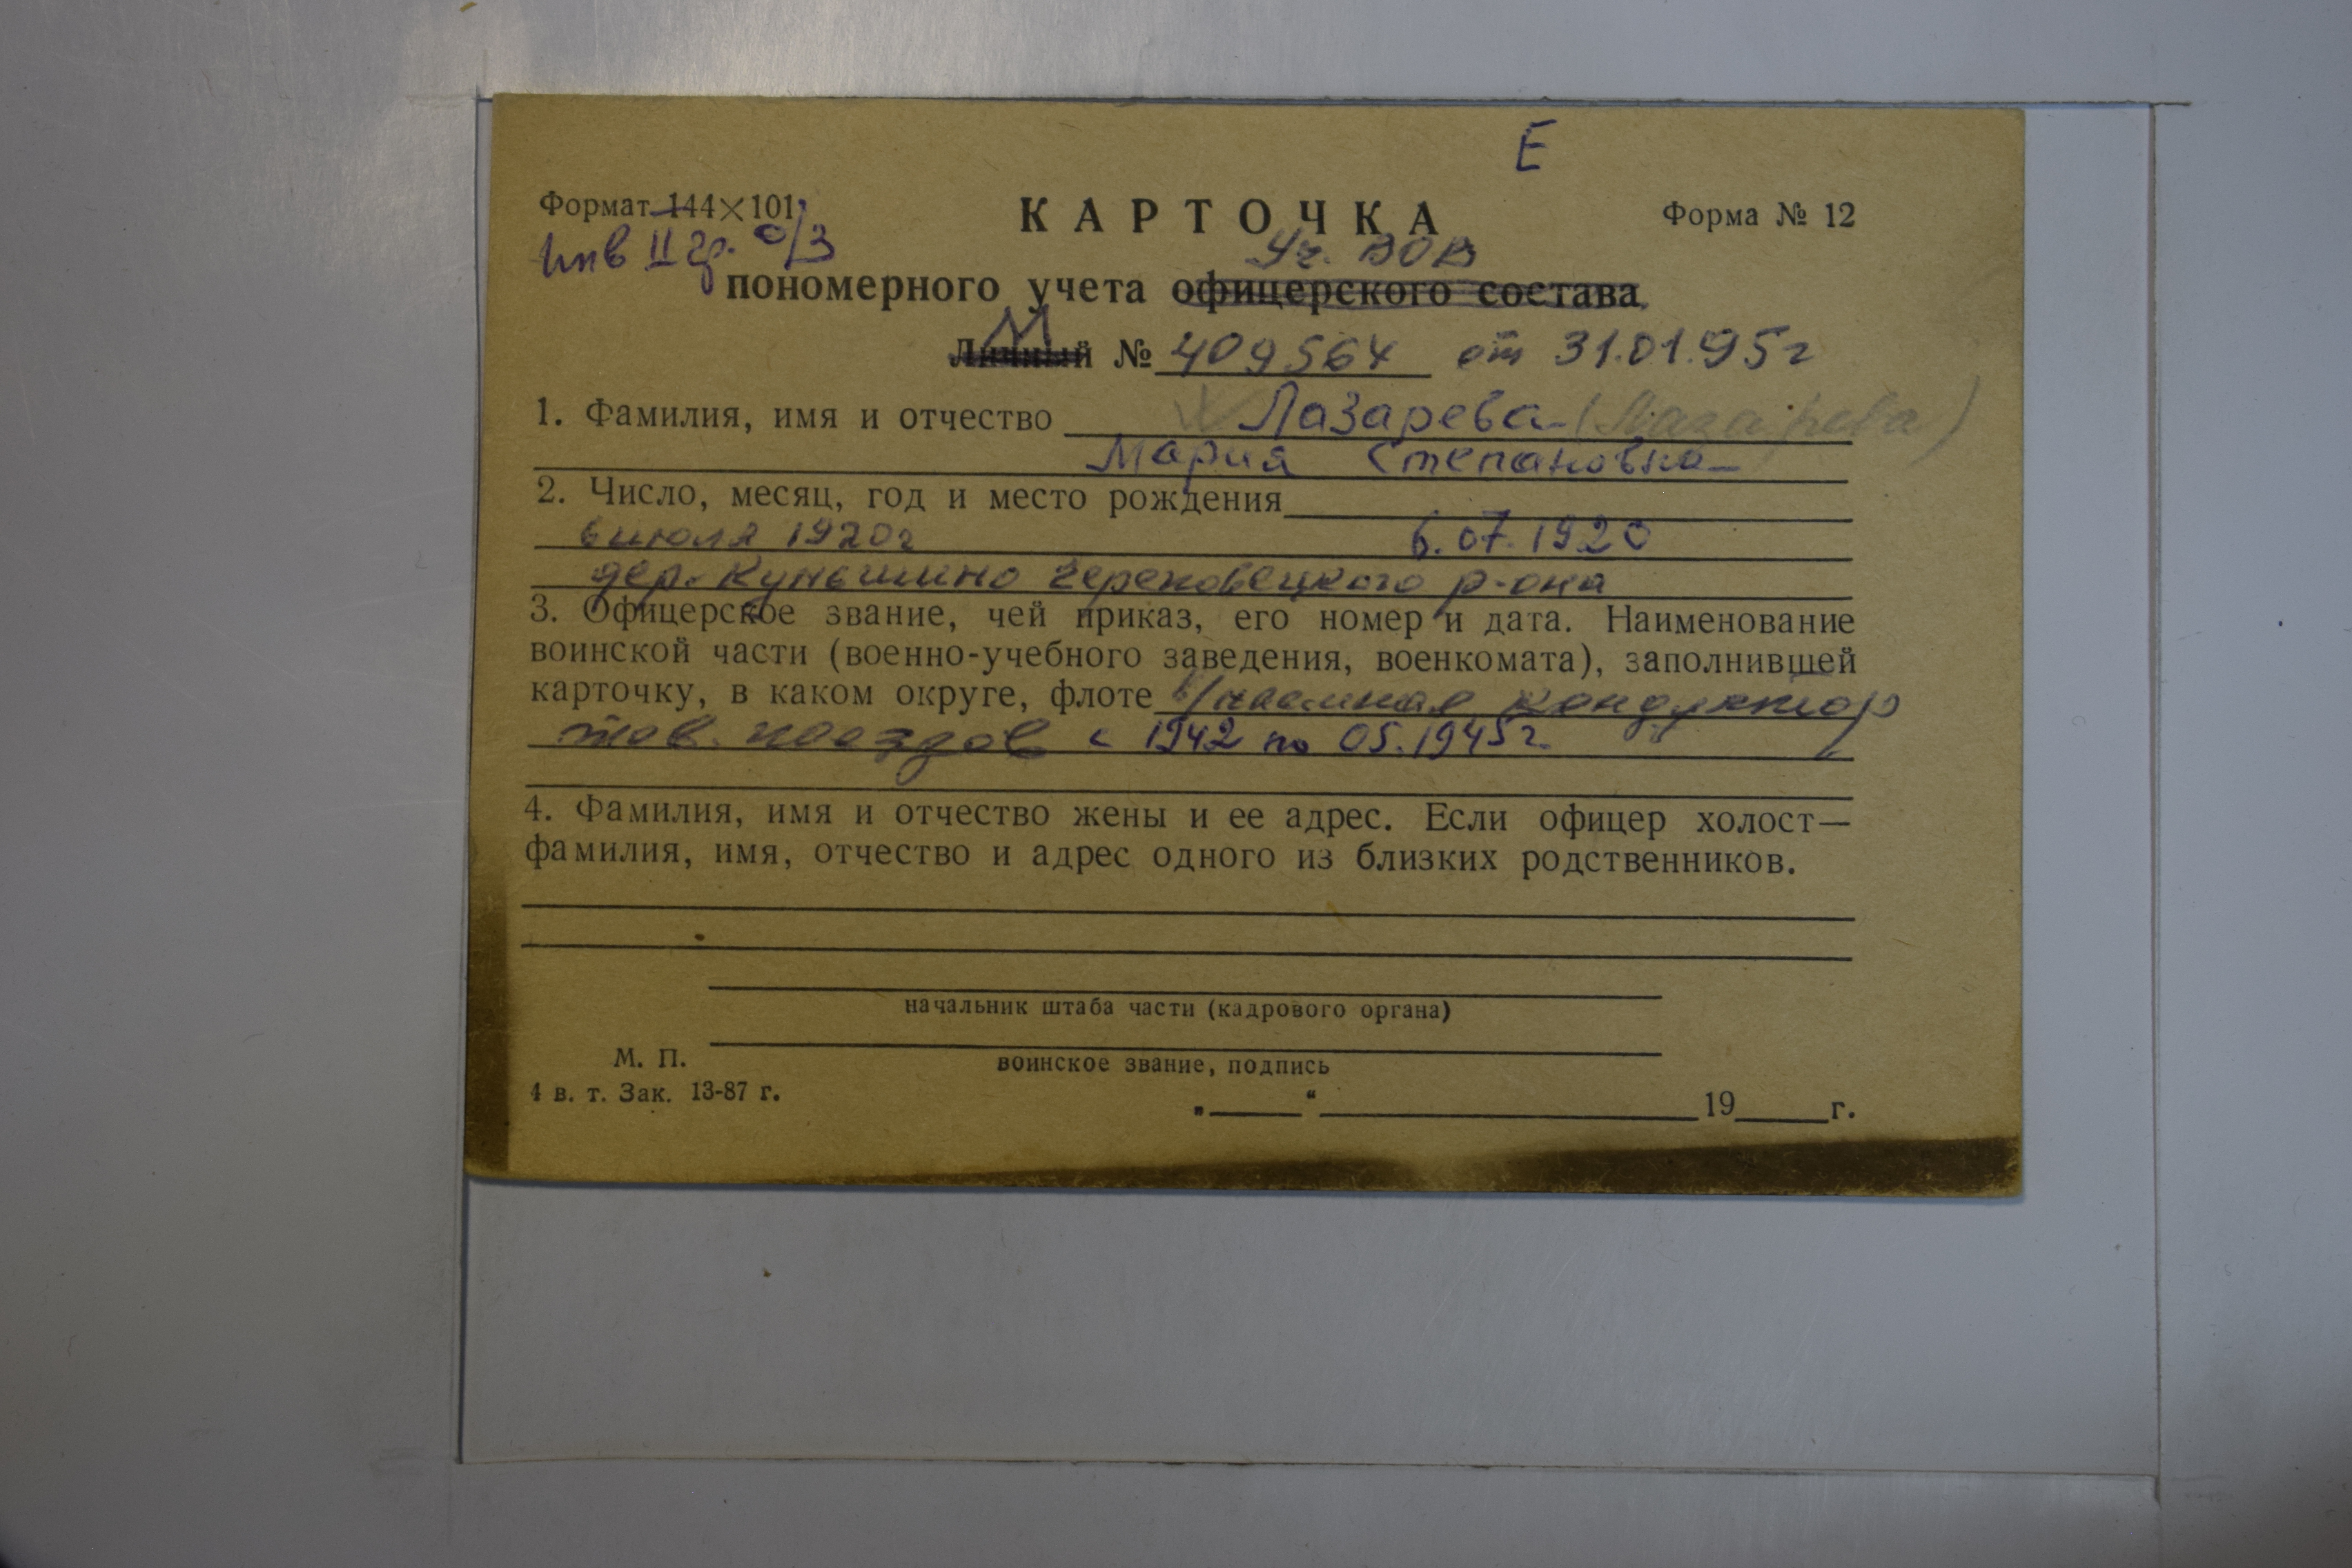 Е
Формат 144×101
КАРТОЧКА
Форма № 12
Инв II гр. о/з
Уч. ВОВ
пономерного учета офицерского состава
М
Личный № 409564 от 31.01.95г
1. Фамилия, имя и отчество Лазарева (Лазарева)
Мария Степановна
2. Число, месяц, год и место рождения
6 июля 1920г 6.07.1920
дер. Куньшино Череповецкого р-она
3. Офицерское звание, чей приказ, его номер и дата. Наименование
воинской части (военно-учебного заведения, военкомата), заполнившей
карточку, в каком округе, флоте в/наемная кондуктор
тов. поездов с 1942 по 05.1945г.
4. Фамилия, имя и отчество жены и ее адрес. Если офицер холост—
фамилия, имя, отчество и адрес одного из близких родственников.
начальник штаба части (кадрового органа)
М. П.
воинское звание, подпись
4 в. т. Зак. 13-87 г.
„ “ 19 г.